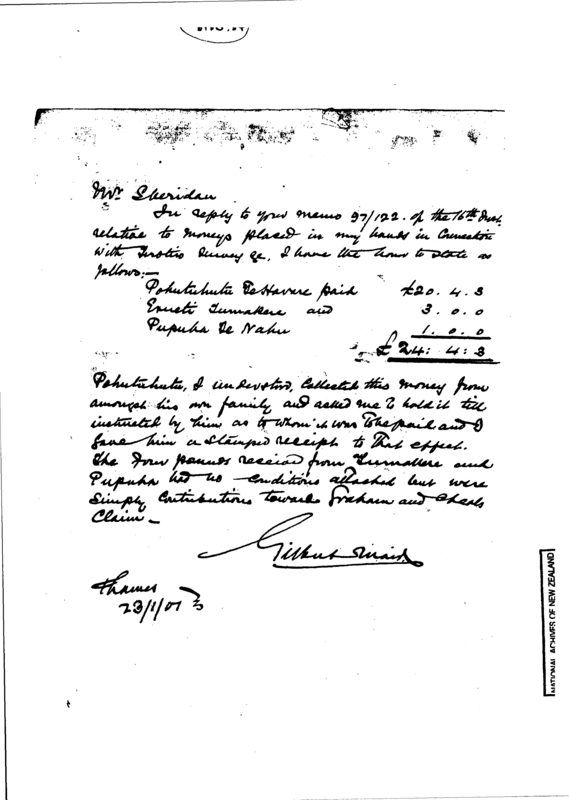 Mr Sheridan
In reply to your memo 97/122. of the 16th Inst.
relative to moneys placed in my hands in Connection
with survey &c, I have the honor to state as
follows:—
Pohutuhutu TeHavare paid £20. 4. 3
Erueti Tumakere and 3. 0. 0
Pupuha Te Nahu 1. 0. 0
£ 24: 4: 3
Pohutuhutu, I understood, Collected this money from
amongst his own family and asked me to hold it till
instructed by him as to whom it was to be paid and I
gave him a stamped receipt to that effect.
The Four pounds received from Tumakere and
Pupuha had no conditions attached but were
Simply Contributions towards Graham and
Claim —
Gilbert Mair
Thames
23/1/07
NATIONAL ARCHIVES OF NEW ZEALAND